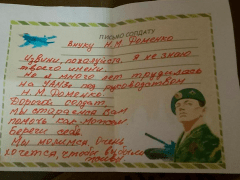 ПИСЬМО СОЛДАТУ
Внуку Н.М. Фоменко
Извини, пожалуйста, я не знаю
твоего имени.
Но я много лет трудилась
на под руководством
Н.М. Фоменко.
Дорогой солдат,
мы стараемся Вам
помочь как можем
Береги себя.
Мы молимся, очень
хочется, чтобы